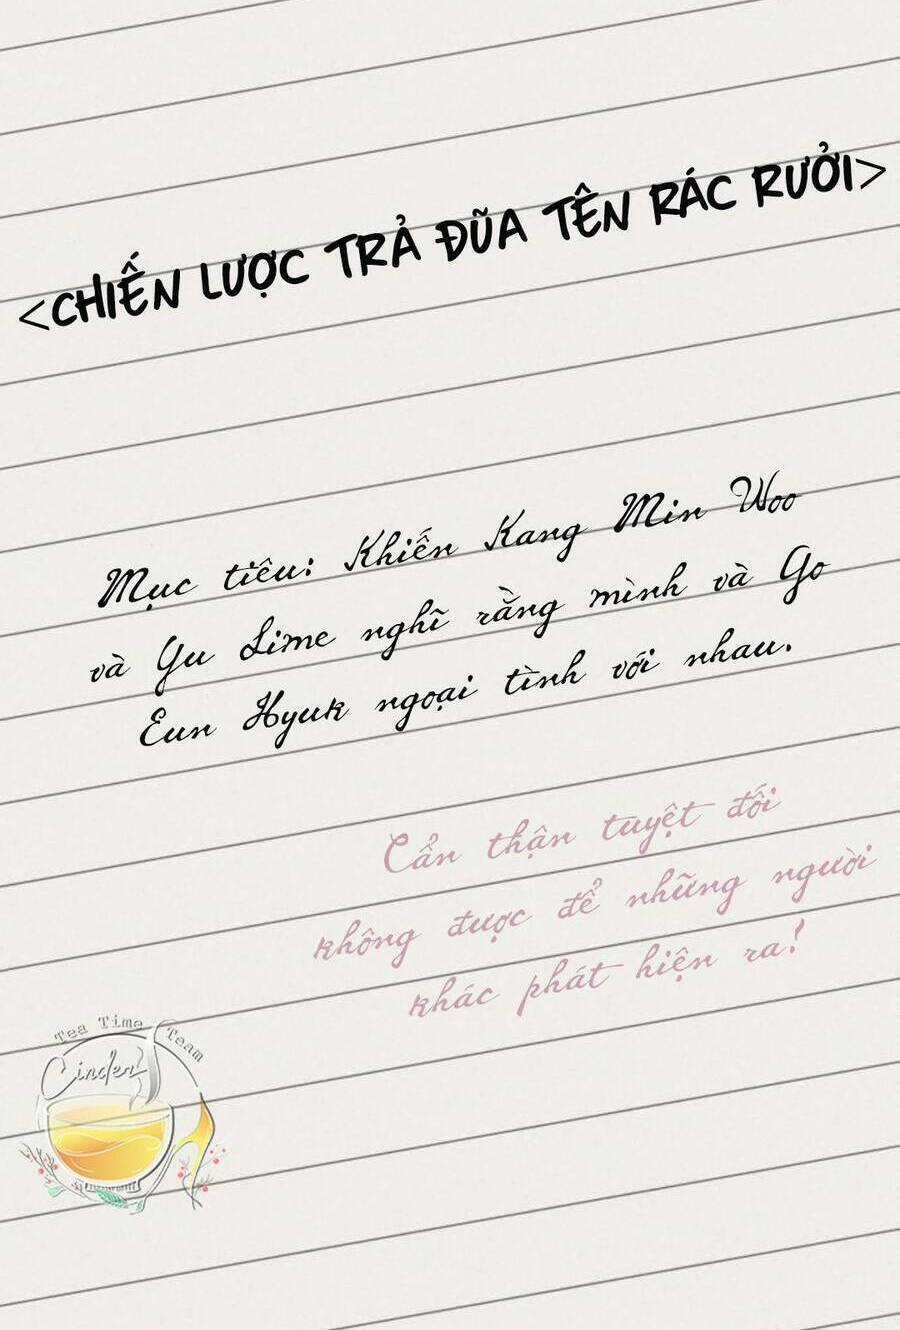 <CHIẾN LƯỢC TRẢ ĐŨA TÊN RÁC RƯỞI>
Mục tiêu: Khiến Kang Min Woo
và Gu Lime nghĩ rằng mình và Go
Eun Hyuk ngoại tình với nhau.
Cẩn thận tuyệt đối
không được để những người
khác phát hiện ra!
Tea Time Team
Cinder